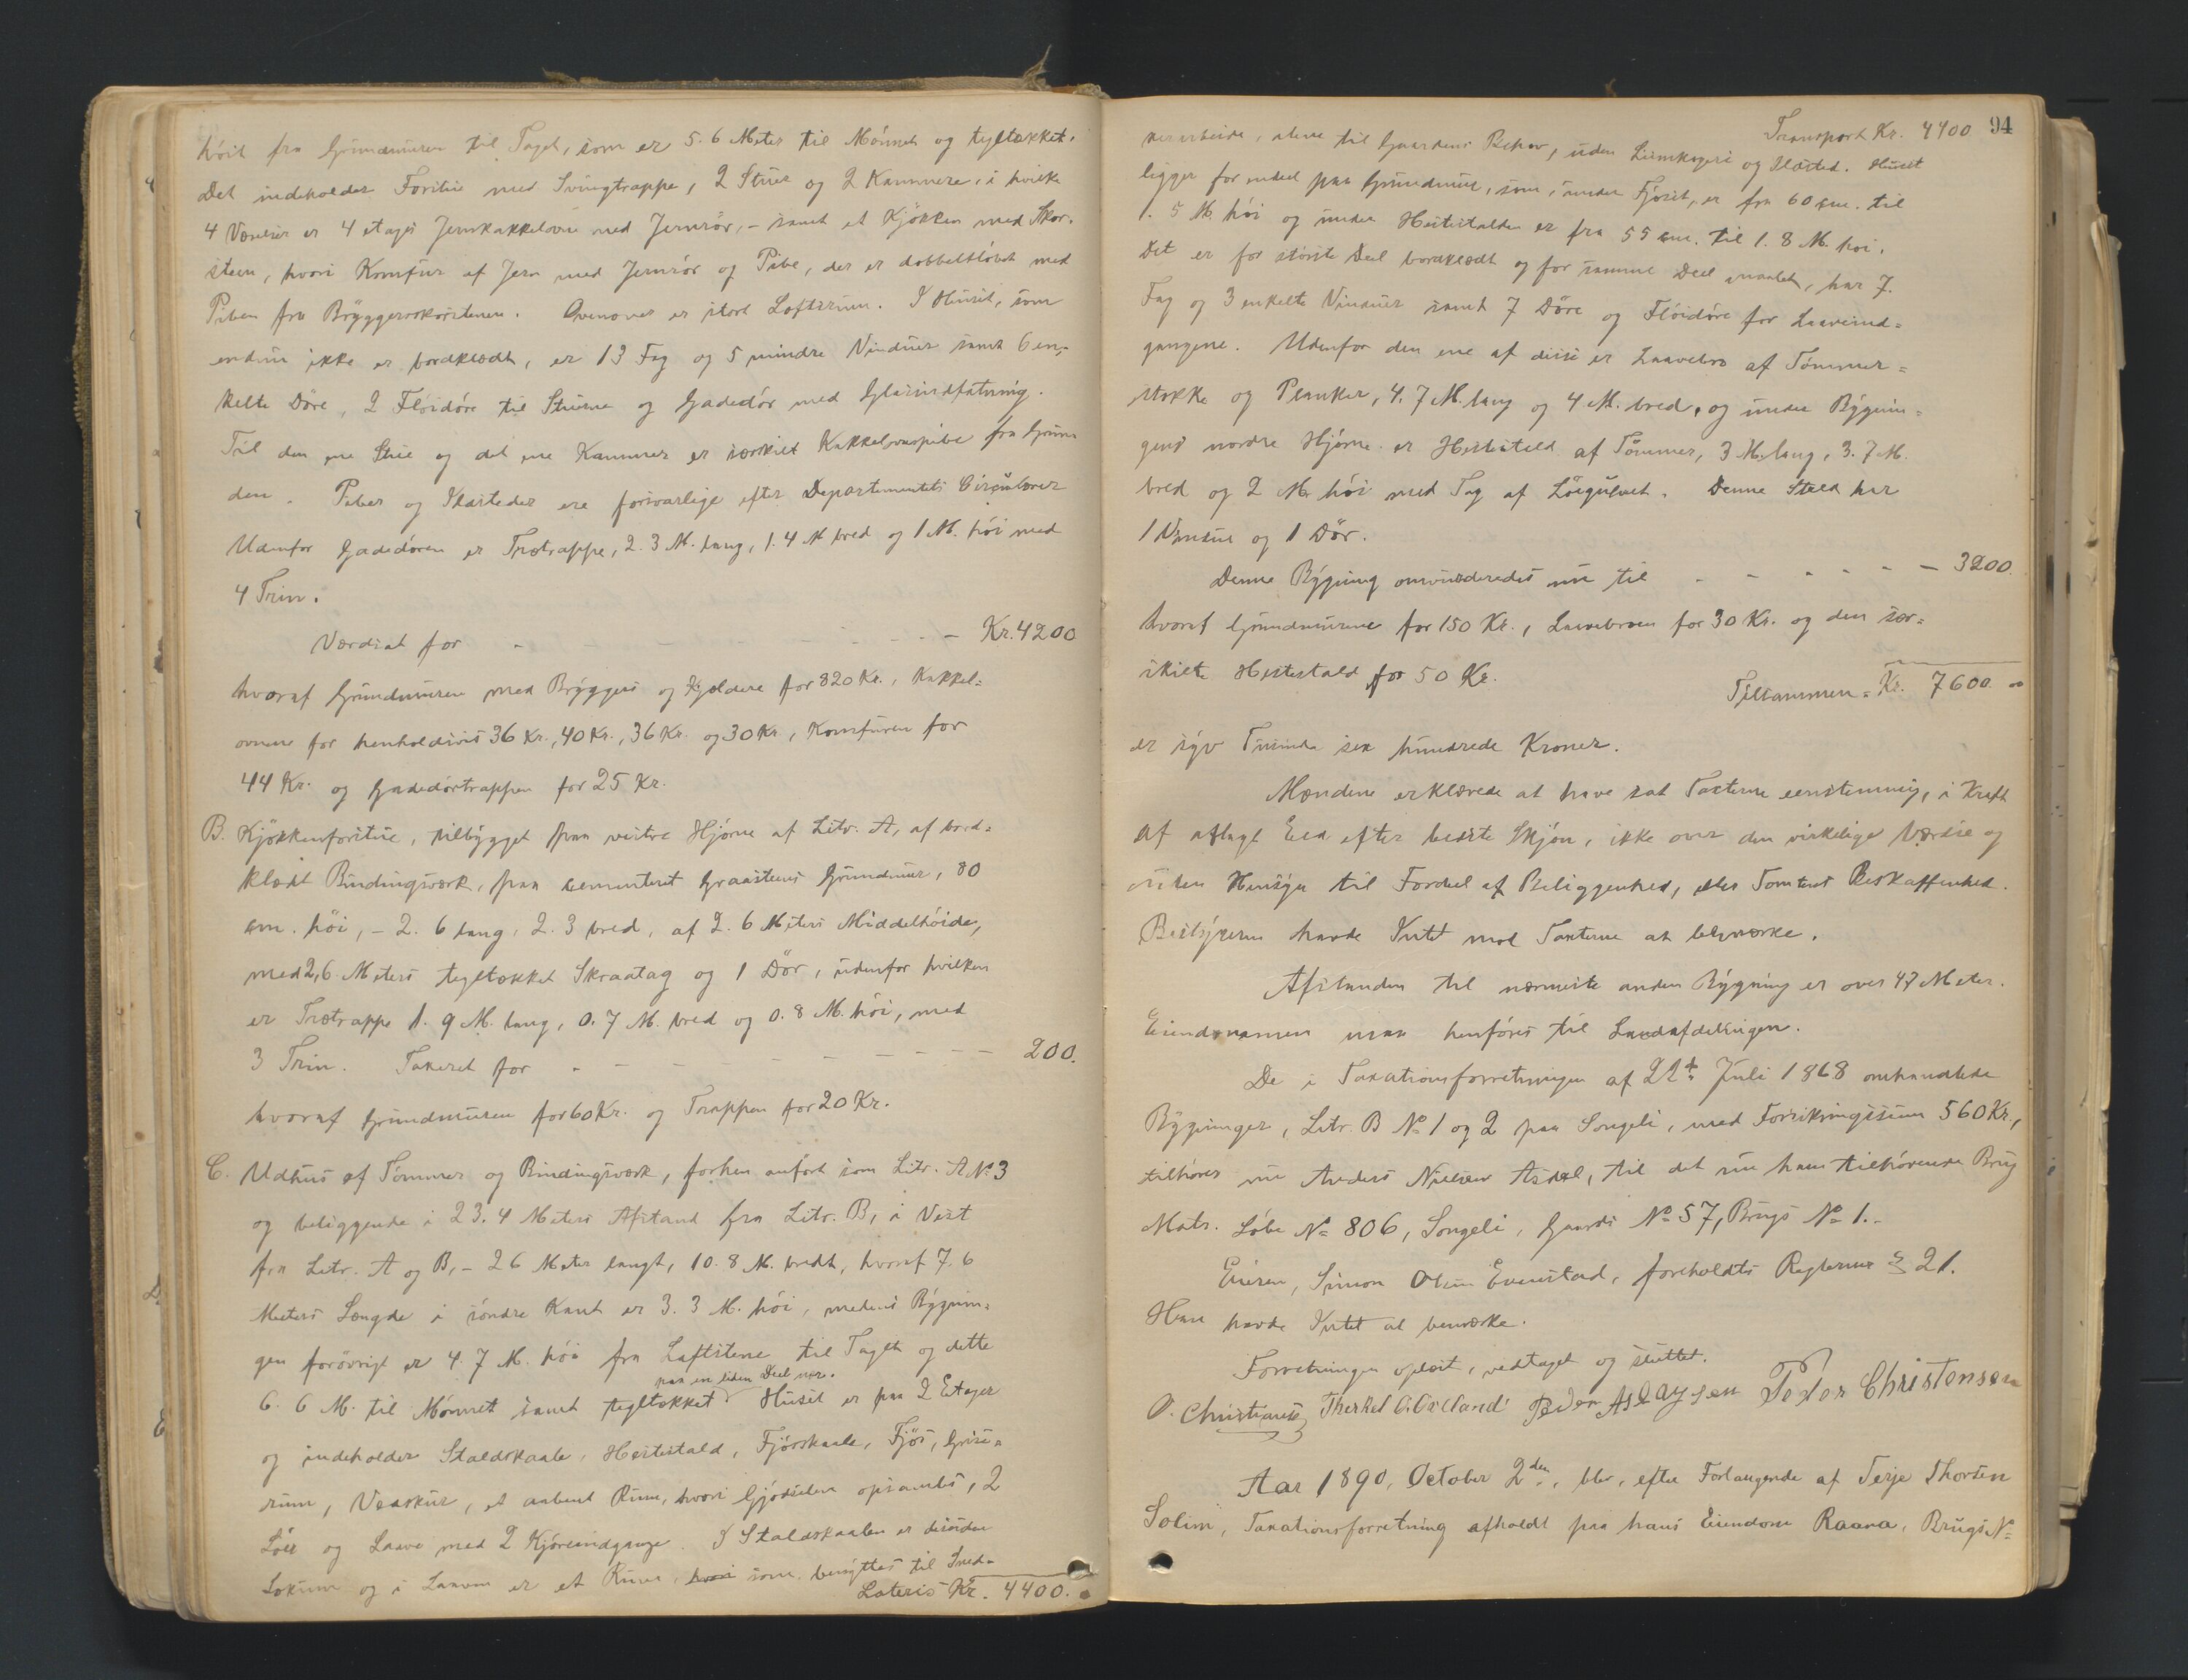 höit fra Grundmuren til Taget, som er 5.6 Meter til Mönnet og tegltækket.
Det indeholder Forstue med Svingtrappe, 2 Stuer og 2 Kammere, i hvilke
4 Værelser er 4 etages Jernkakkelovne med Jernrör, - samt et Kjökken med Skor-
steen, hvori Komfur af Jern med Jernrör og Pibe, der er dobbeltlöbet med
Piben fra Bryggerskorstenen. Ovenover er stort Loftsrum. I Huset, som
endnu ikke er bordklædt, er 13 Fag og 5 mindre Vinduer samt 6 en-
kelte Döre, 2 Flöidöre til Stuerne og Gadedör med Glasindfatning.
Til den ene Stue og det ene Kammer er særskilt Kakkelovnspibe fra Grun-
den. Piber og Ildsteder ere forsvarlige efter Departementets Circulærer
Udenfor Gadedören er Trætrappe, 2.3 M. lang, 1.4 M bred og 1 M. höi med
4 Trin.
Værdsat for - - - - - - - Kr. 4200
hvoraf Grundmuren med Bryggers og Kjeldere for 820 Kr., Kakkel-
ovnene for henholdsvis 36 Kr., 40 Kr., 36 Kr. og 30 Kr, Komfuren for
44 Kr. og Gadedörtrappen for 25 Kr.
B. Kjökkenforstue, tilbygget paa vestre Hjörne af Litr. A, af bord-
klædt Bindingsværk, paa cementeret Graasteens Grundmur, 80
cm. höi, - 2.6 lang, 2.3 bred, af 2.6 Meters Middelhöide,
med 2,6 Meters tegltækket Skraatag og 1 Dör, udenfor hvilken
er Trætrappe 1.9 M. lang, 0.7 M. bred og 0.8 M. höi, med
3 Trin. Taxeret for - - - - - - - 200.
hvoraf Grundmuren for 60 Kr. og Trappen for 20 Kr.
C. Udhus af Tömmer og Bindingsværk, forhen anfört som Litr. A No 3
og beliggende i 23.4 Meters Afstand fra Litr. B, i Vest
fra Litr. A og B, - 26 Meter langt, 10.8 M. bredt, hvoraf 7.6
Meters Længde i söndre Kant er 3.3 M. höi, medens Bygnin-
gen forövrigt er 4.7 M. höi fra Loftstene til Taget og dette
paa en liden Deel nær.
6.6 M. til Mönnet samt tegltækket Huset er paa 2 Etager
og indeholder Staldskaale, Hestestald, Fjösskaale, Fjös, Grise-
rum, Vedskur, et aabent Rum, hvori Gjödselen opsamles, 2
Löer og Laave med 2 Kjöreindgange. I Staldskaalen er desuden
Lokum og i Laaven er et Rum, hvori som benyttes til Sned-
Lateris Kr. 4400.
94
Transport Kr. 4400
kerarbeide, alene til Gaardens Behov, uden Liimkogeri og Ildsted. Huset
ligger for endeel paa Grundmur, som, under Fjöset, er fra 60 cm. til
1.5 M. höi og under Hestestalden er fra 55 cm. til 1.8 M. höi.
Det er for störste Deel bordklædt og for samme Deel malet, har 7.
Fag og 3 enkelte Vinduer samt 7 Döre og Flöidöre for Laaveind-
gangene. Udenfor den ene af disse er Laavebro af Tömmer-
stokke og Planker, 4.7 M. lang og 4 M. bred, og under Bygnin-
gens nordre Hjörne er Hestestald af Tömmer, 3 M. lang, 3.7 M.
bred og 2 M. höi med Tag af Löegulvet. Denne Stald har
1 Vindue og 1 Dör.
Denne Bygning omvurderedes nu til - - - - - - 3200.
hvoraf Grundmurene for 150 Kr., Laavebroen for 30 Kr. og den sær-
skilte Hestestald for 50 Kr.
Tilsammen = Kr. 7600. =
er syv Tusinde sex hundrede Kroner.
Mændene erklærede at have sat Taxterne eenstemmig, i Kraft
af aflagt Eed efter bedste Skjön, ikke over den virkelige Værdie og
uden Hensyn til Fordeel af Beliggenhed, eller Tomtens Beskaffenhed.
Bestyreren havde Intet mod Taxterne at bemærke.
Afstanden til nærmeste anden Bygning er over 47 Meter.
Eiendommen maa henföres til Landafdelingen.
De i Taxationsforretningen af 22de Juli 1868 omhandlede
Bygninger, Litr. B No 1 og 2 paa Songeli, med Forsikringssum 560 Kr,
tilhörer nu Anders Nielsen Asdal, til det nu ham tilhörende Brug
Matr. Löbe No 806, Songeli, Gaards No 57, Brugs No 1. -
Eieren, Simon Olsen Evenstad, foreholdtes Reglernes § 21.
Han havde Intet at bemærke.
Forretningen oplæst, vedtaget og sluttet.
O. Christiansen Therkel O. Oxeland Peder Aslaksen Peder Christensen
Aar 1890, October 2den, blev, efter Forlangende af Terje Thorsen
Solim, Taxationsforretning afholdt paa hans Eiendom Raana, Brugs No